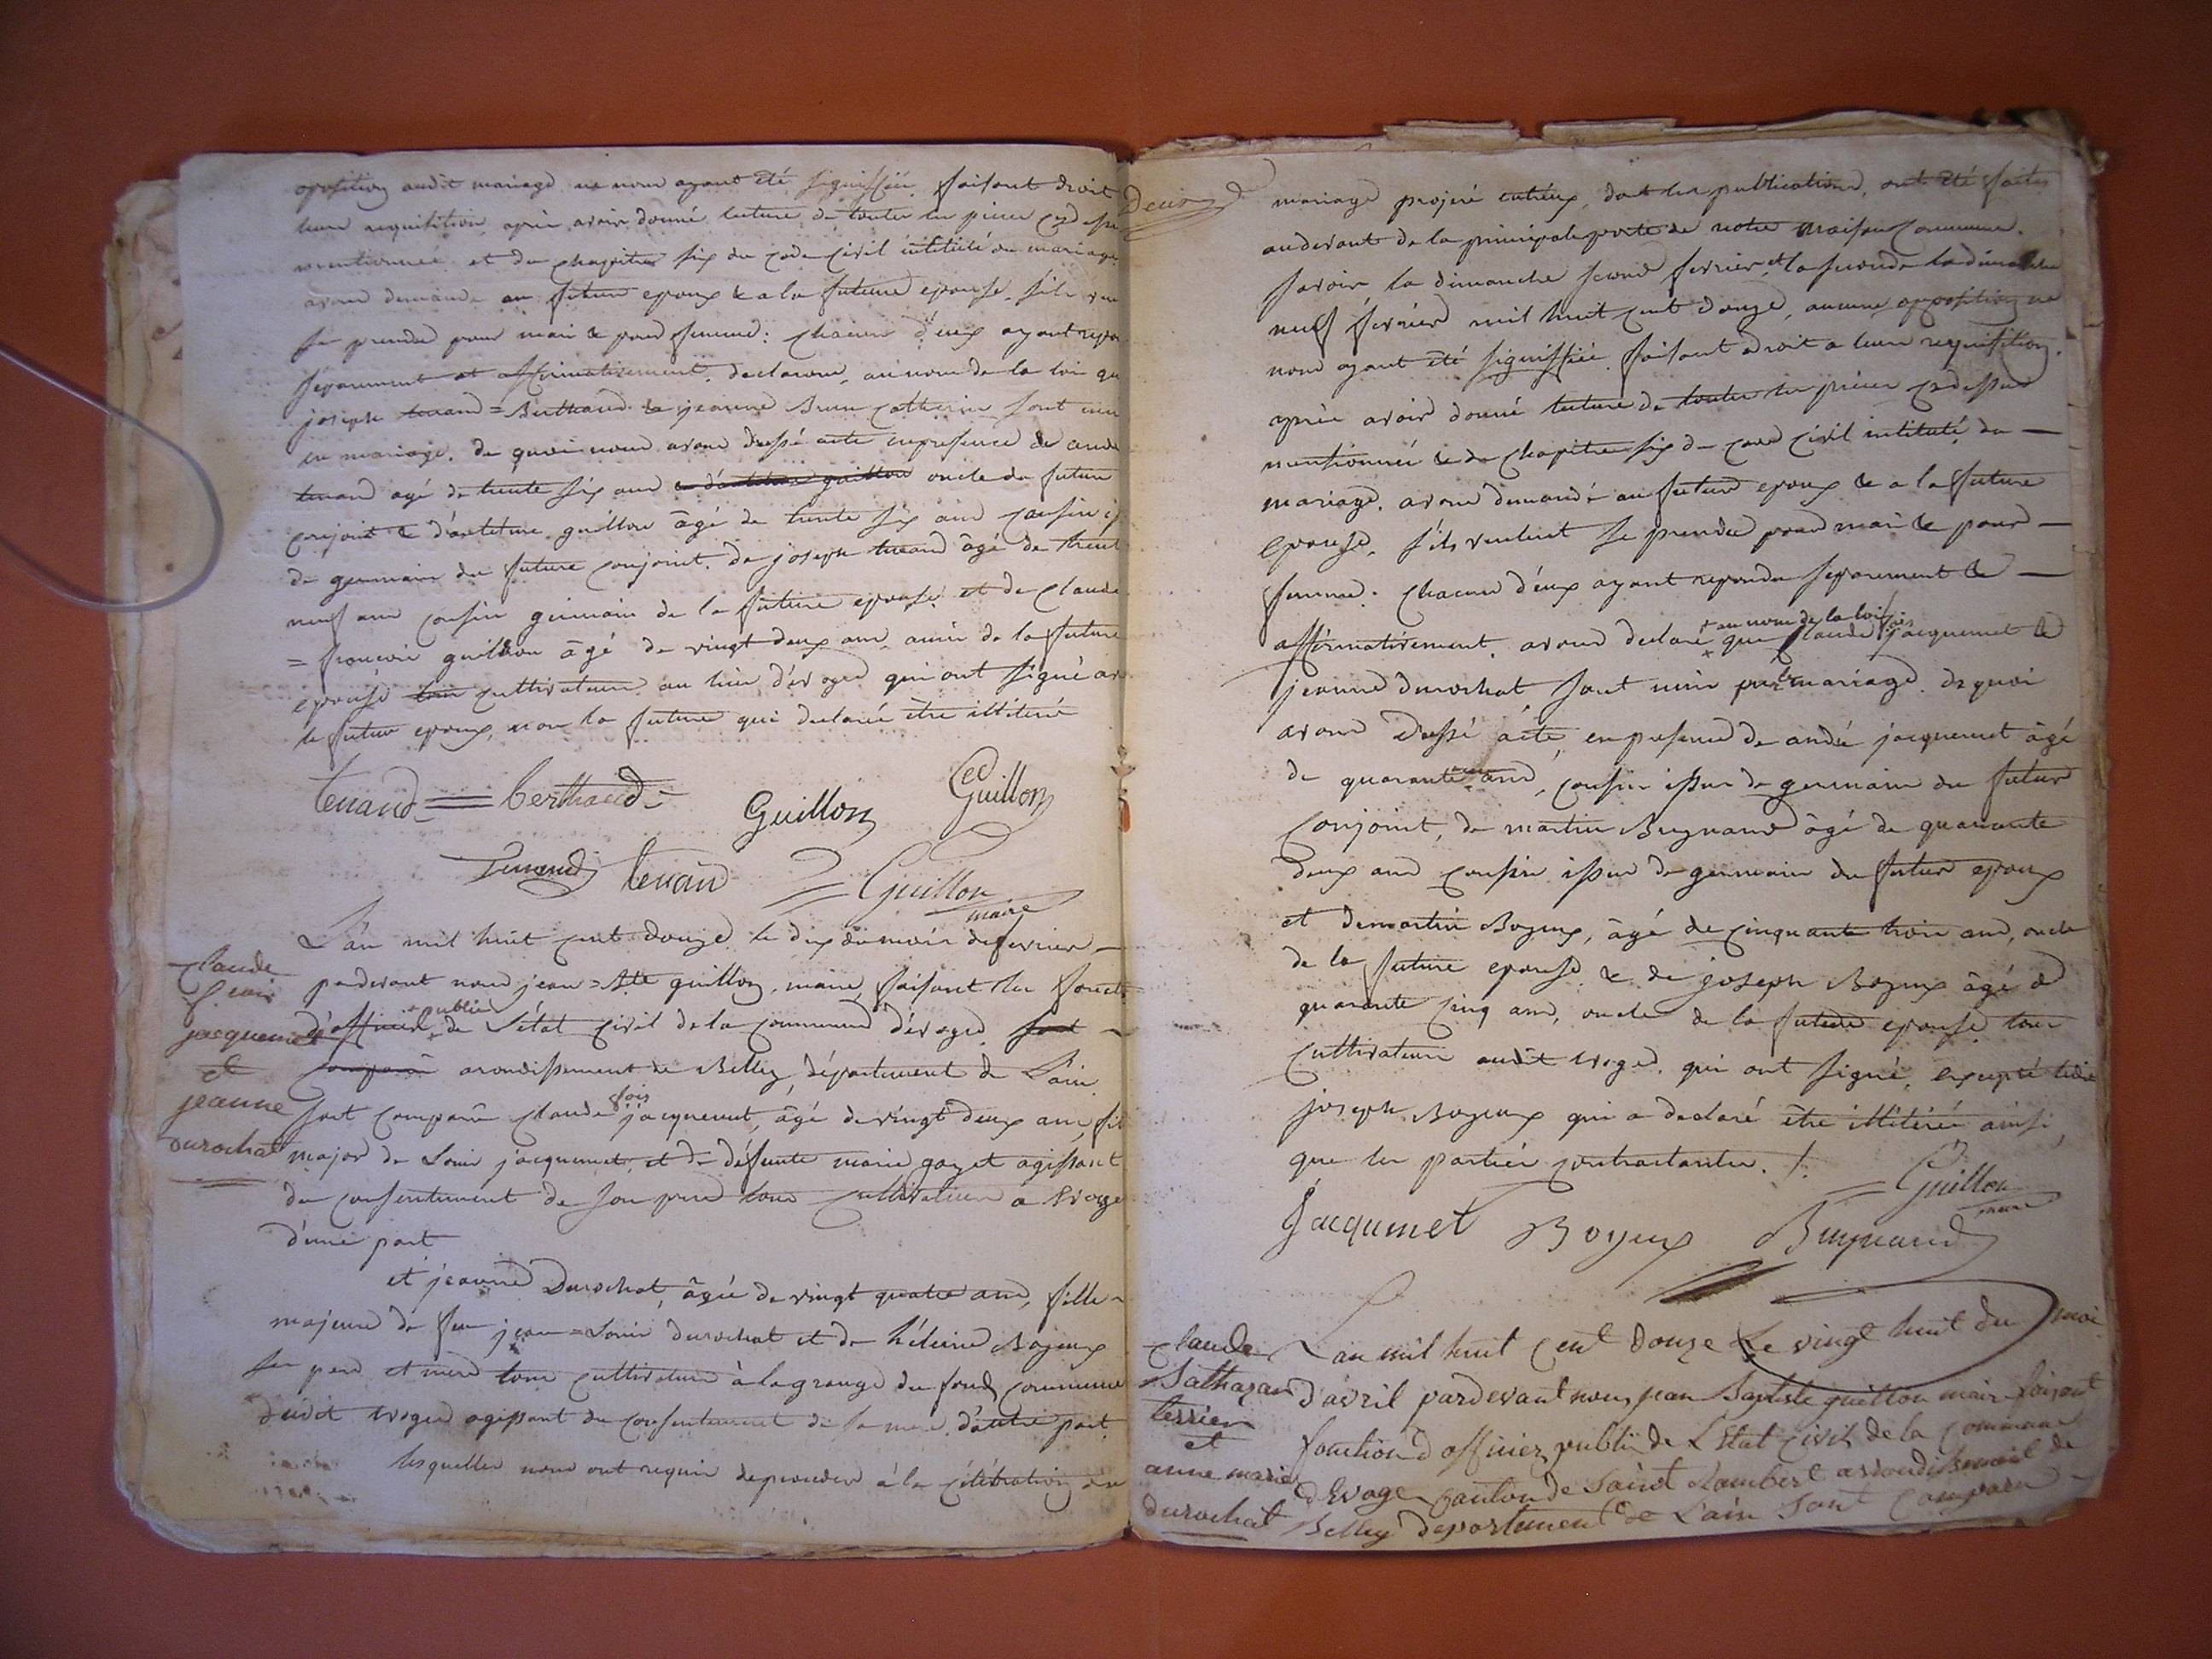 opposition audit mariage ne nous ayant été signiffiée. faisant droit
leur requisition, après avoir donné lecture de toutes les pieces cy dessu
mentionnees et du chapitre six du code civil intitulé du mariage
avons demandé au futur epoux & a la future epouse, s'ils veu
se prendre pour mari & pour femme: chacun d'eux ayant repon
séparement et affirmativement, declarons, au nom de la loi que
joseph tenand = Berthaud & jeanne Brun Catherin sont unis
en mariage. de quoi nous avons dressé acte en presence de andré
tenand agé de trente six ans oncle du futur
conjoint & d'antelme guillon âgé de trente six ans cousin is
de germain du future conjoint. de joseph tenand âgé de trente
neuf ans cousin germain de la future epouse et de Claude
= françois guillon âgé de vingt deux ans, amis de la future
epouse tous cultivateurs au lieu d'évoges qui ont signé avec
le futur epoux, non la future qui declarée être illiteré
tenand = berthaud
Guillon
Guillon
tenand
Guillon
maire
L'an mil huit cent douze le dix du mois de fevrier
Claude
f.çois
jacquemet
et
jeanne
durochat
pardevant nous jean = Bte guillon, maire, faisant les foncti
d'officier + public de l'état civil de la commune d'évoges. sont
comparu arondissement de Belley, département de L'ain
sont comparu Claude fois jacquemet, âgé de vingt deux ans, fils
major de Louis jacquemet, et de défunte marie gazet agissant
du consentement de son pere tous cultivateurs a Evoge
d'une part
et jeanne Durochat, âgée de vingt quatre ans, fille
majeure de feu jean = Louis durochat et de héleine Bozeux
ses pere et mere tous cultivateurs à la grange du fond commune
dudit Evoges agissant du consentement de sa mere, d'autre part.
lesquelles nous ont requis de proceder à la célébration du
mariage projeté entr'eux, dont les publications, ont été faites
audevant de la principale porte de notre maison Commune.
savoir la dimanche second fevrier, & la seconde la dimanche
neuf fevrier mil huit cent douze, aucune opposition ne
nous ayant été signiffiée. faisant droit a leurs requisition.
après avoir donné lecture de toutes les pieces cy dessus
mentionnées & du chapitre six du code civil intitulé du
mariage. avons demandé au futur epoux & a la future
epouse, s'ils veulent se prendre pour mari & pour
femme: chacun d'eux ayant repondu séparement &
+ au nom de la loi
affirmativement, avons declaré + que Claude fois jacquemet &
jeanne durochat, sont unis par le mariage. de quoi
avons dressé acte, en presence de andré jacquemet âgé
de quarante ans, cousin issus de germain du futur
Conjoint, de martin Bugnand âgé de quarante
deux ans cousin issus de germain du futur epoux
et de martin Bozeux, âgé de cinquante trois ans, oncle
de la future epouse & de joseph Bozeux âgé de
quarante cinq ans, oncle de la future epouse tous
cultivateurs audit Evoges, qui ont signé, excepté ledit
joseph Bozeux qui a declaré être illiteré ainsi
que les parties contractantes. /.
Guillon
maire
Jacqumet Bozeux Bugnand
claude
Balthazard
terrier
et
anne marie
durochat
Lan mil huit cent douze Le vingt huit du moi
d'avril pardevant nous jean Baptiste guillon maire faisant
fonction d officier public de L Etat civil de la commune
d Evoge canton de Saint Rambert arrondissement de
Belley departement de L'ain Sont comparu